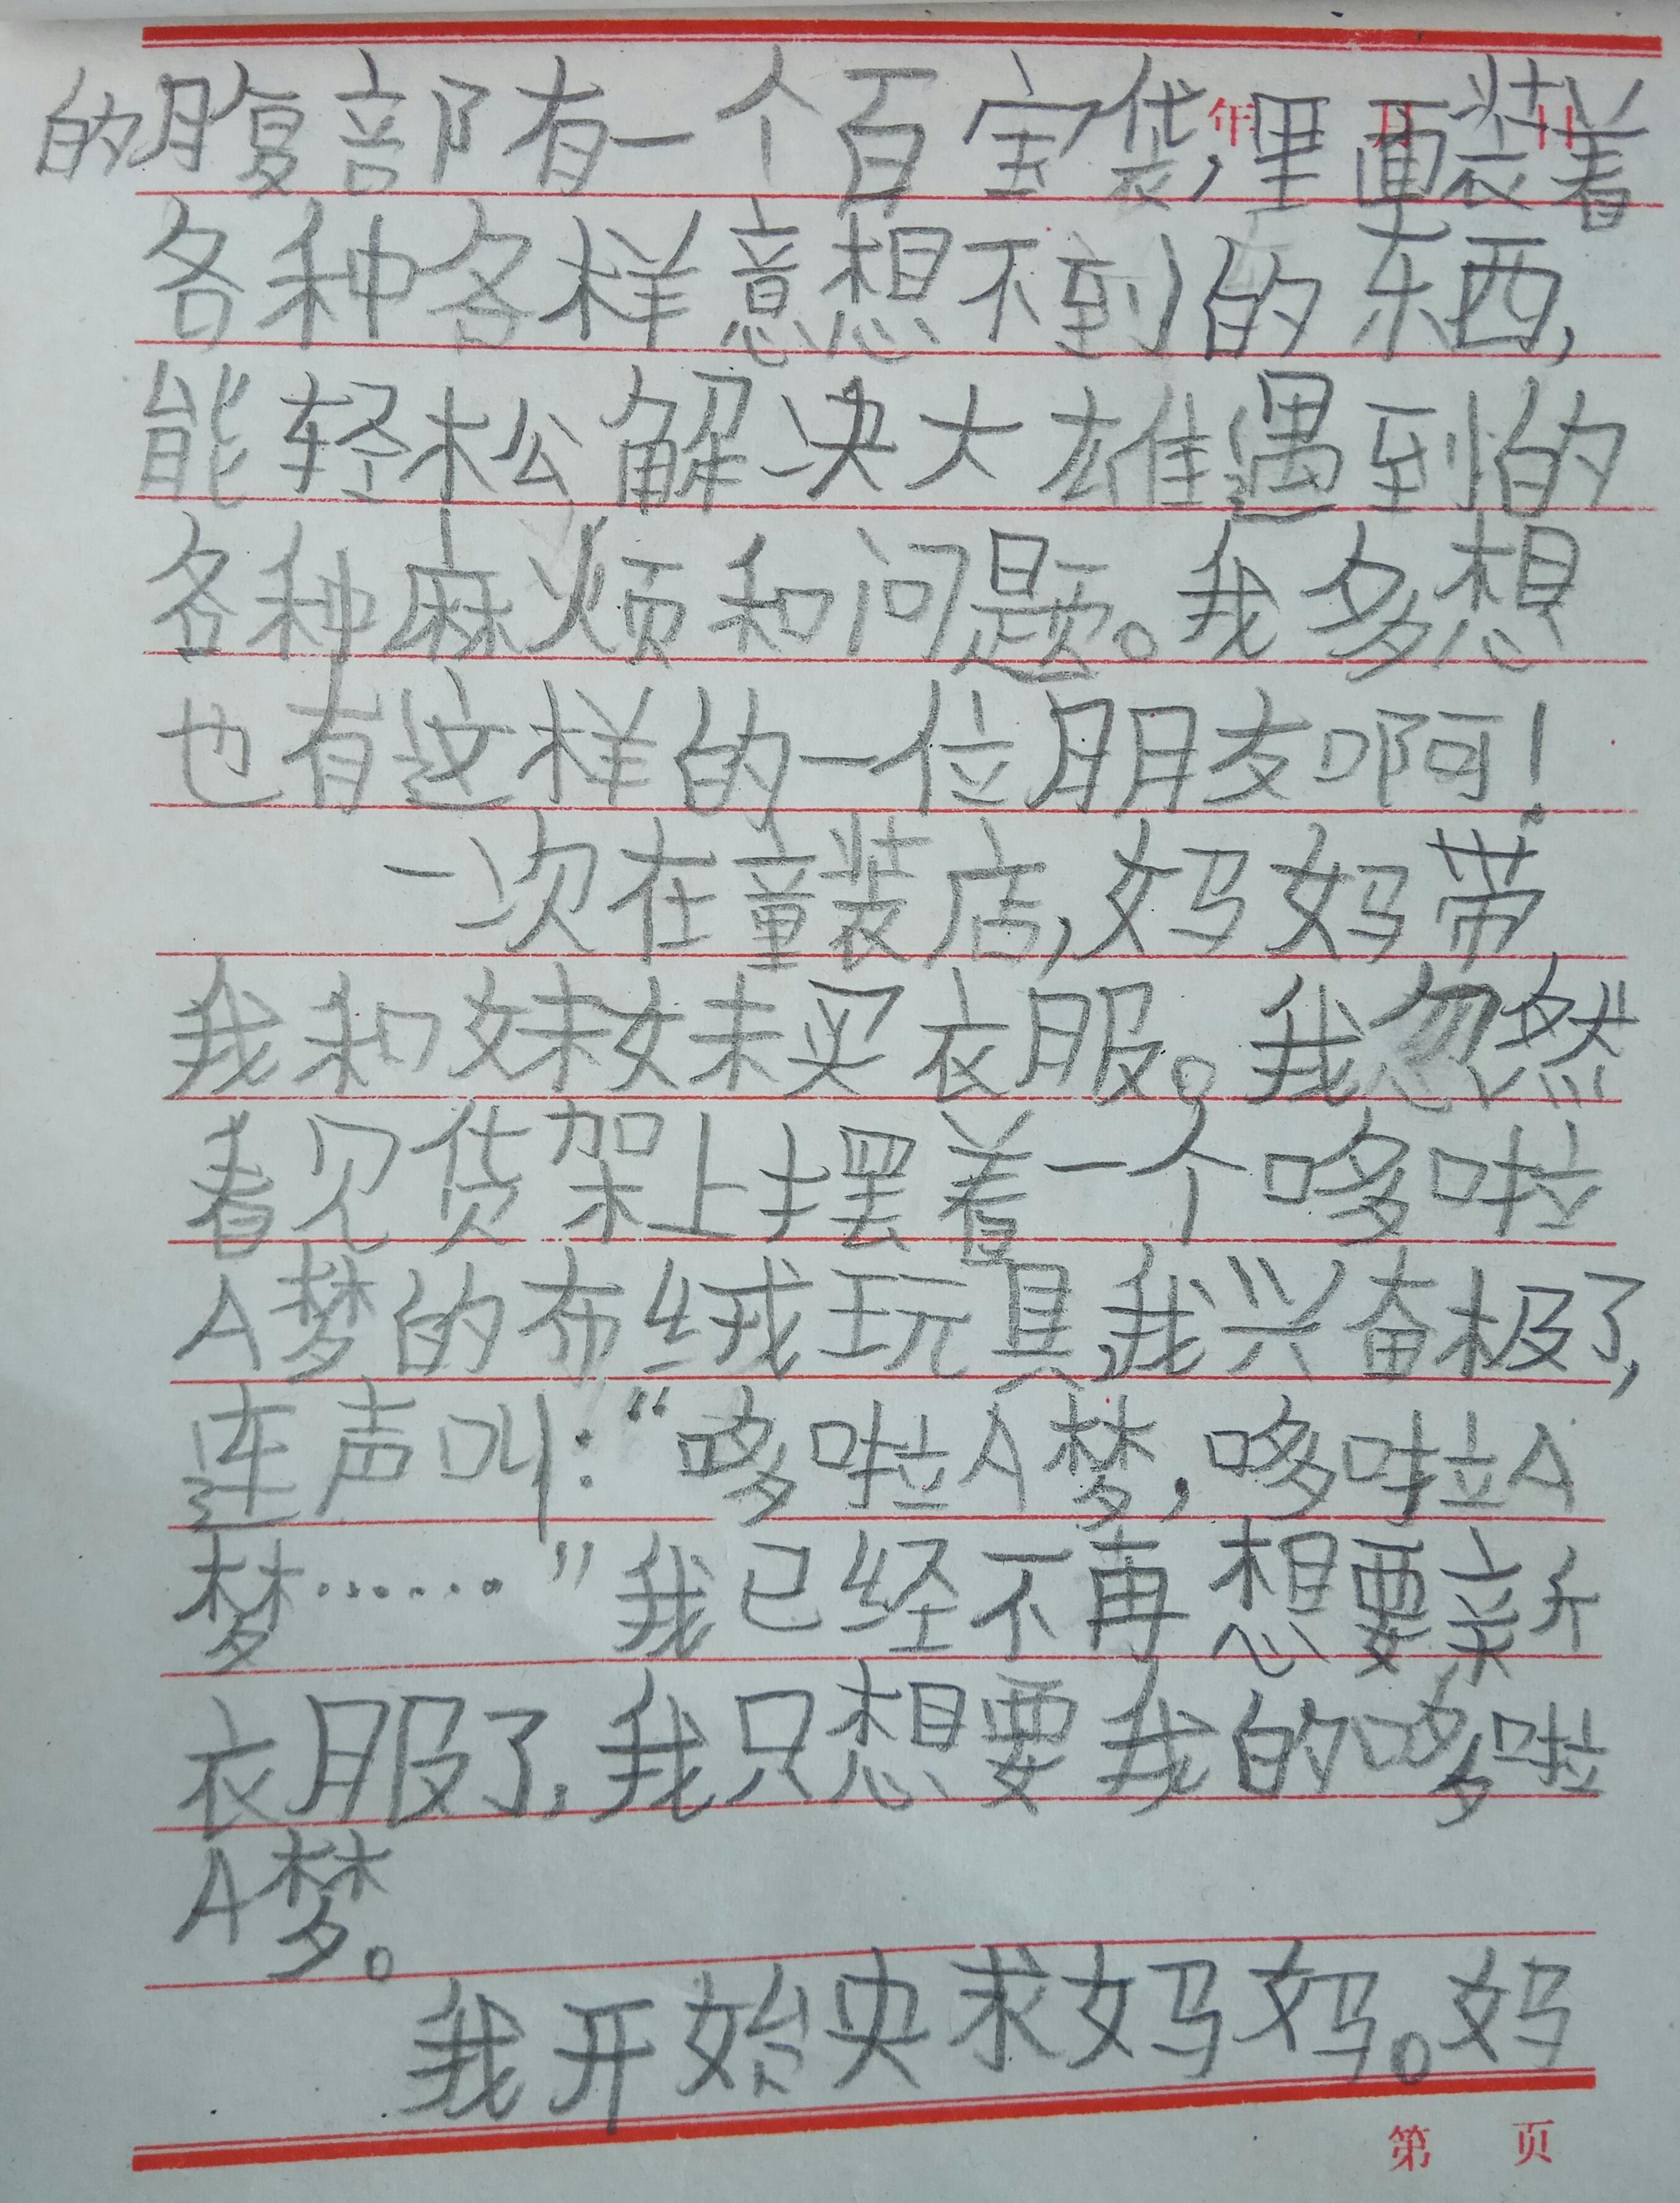 年 月 日
的腹部有一个百宝袋,里面装着
各种各样意想不到的东西,
能轻松解决大雄遇到的
各种麻烦和问题。我多想
也有这样的一位朋友啊!
一次在童装店,妈妈带
我和妹妹买衣服。我忽然
看见货架上摆着一个哆啦
A梦的布绒玩具,我兴奋极了,
连声叫:“哆啦A梦,哆啦A
梦……”我已经不再想要新
衣服了,我只想要我的哆啦
A梦。
我开始央求妈妈。妈
第 页